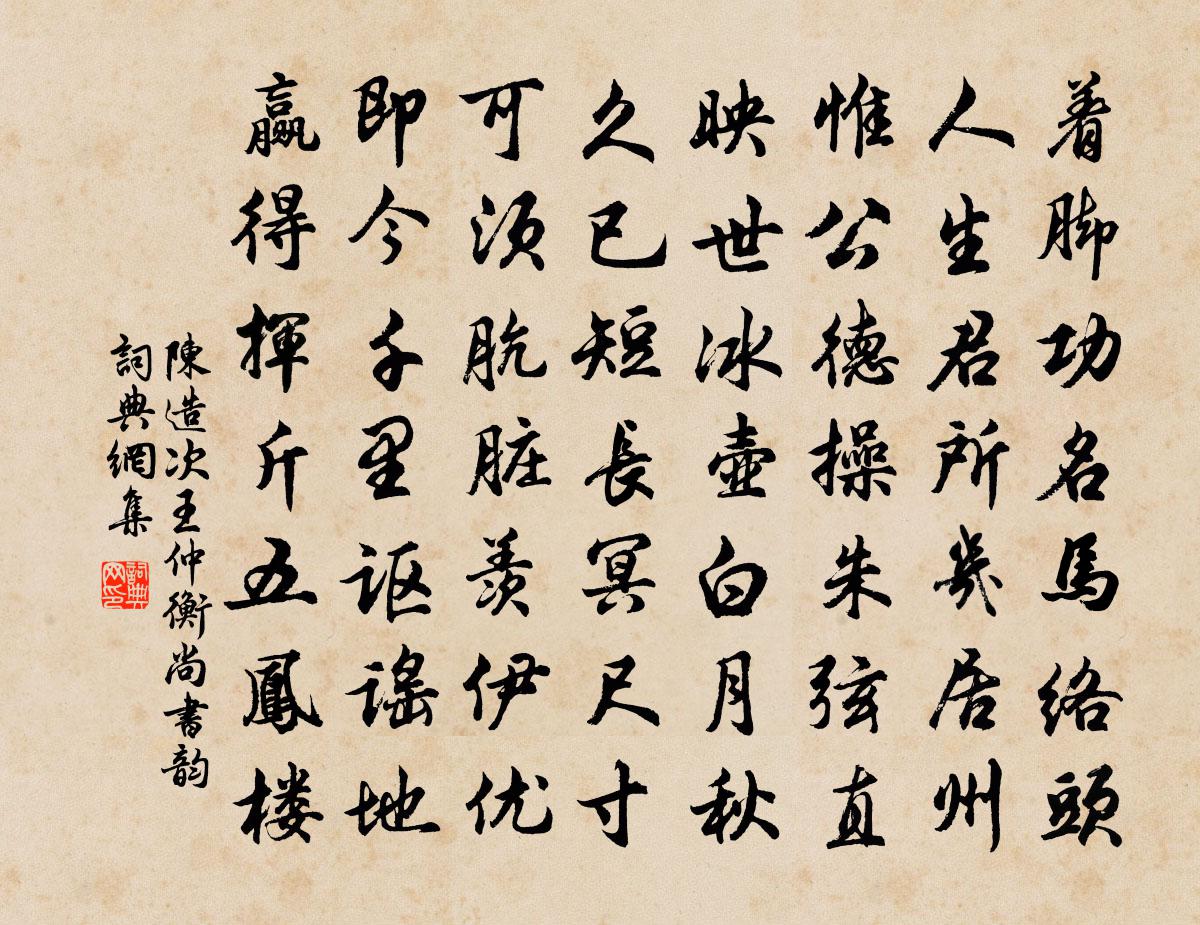 着脚功名馬络頭
人生君所幾居州
惟公德操朱弦直
映世冰壺白月秋
久已短長冥尺寸
可須肮脏羨伊优
即今千里讴謠地
赢得揮斤五鳳楼
陳造次王仲衡尚書韵
詞典網集
詞典网印